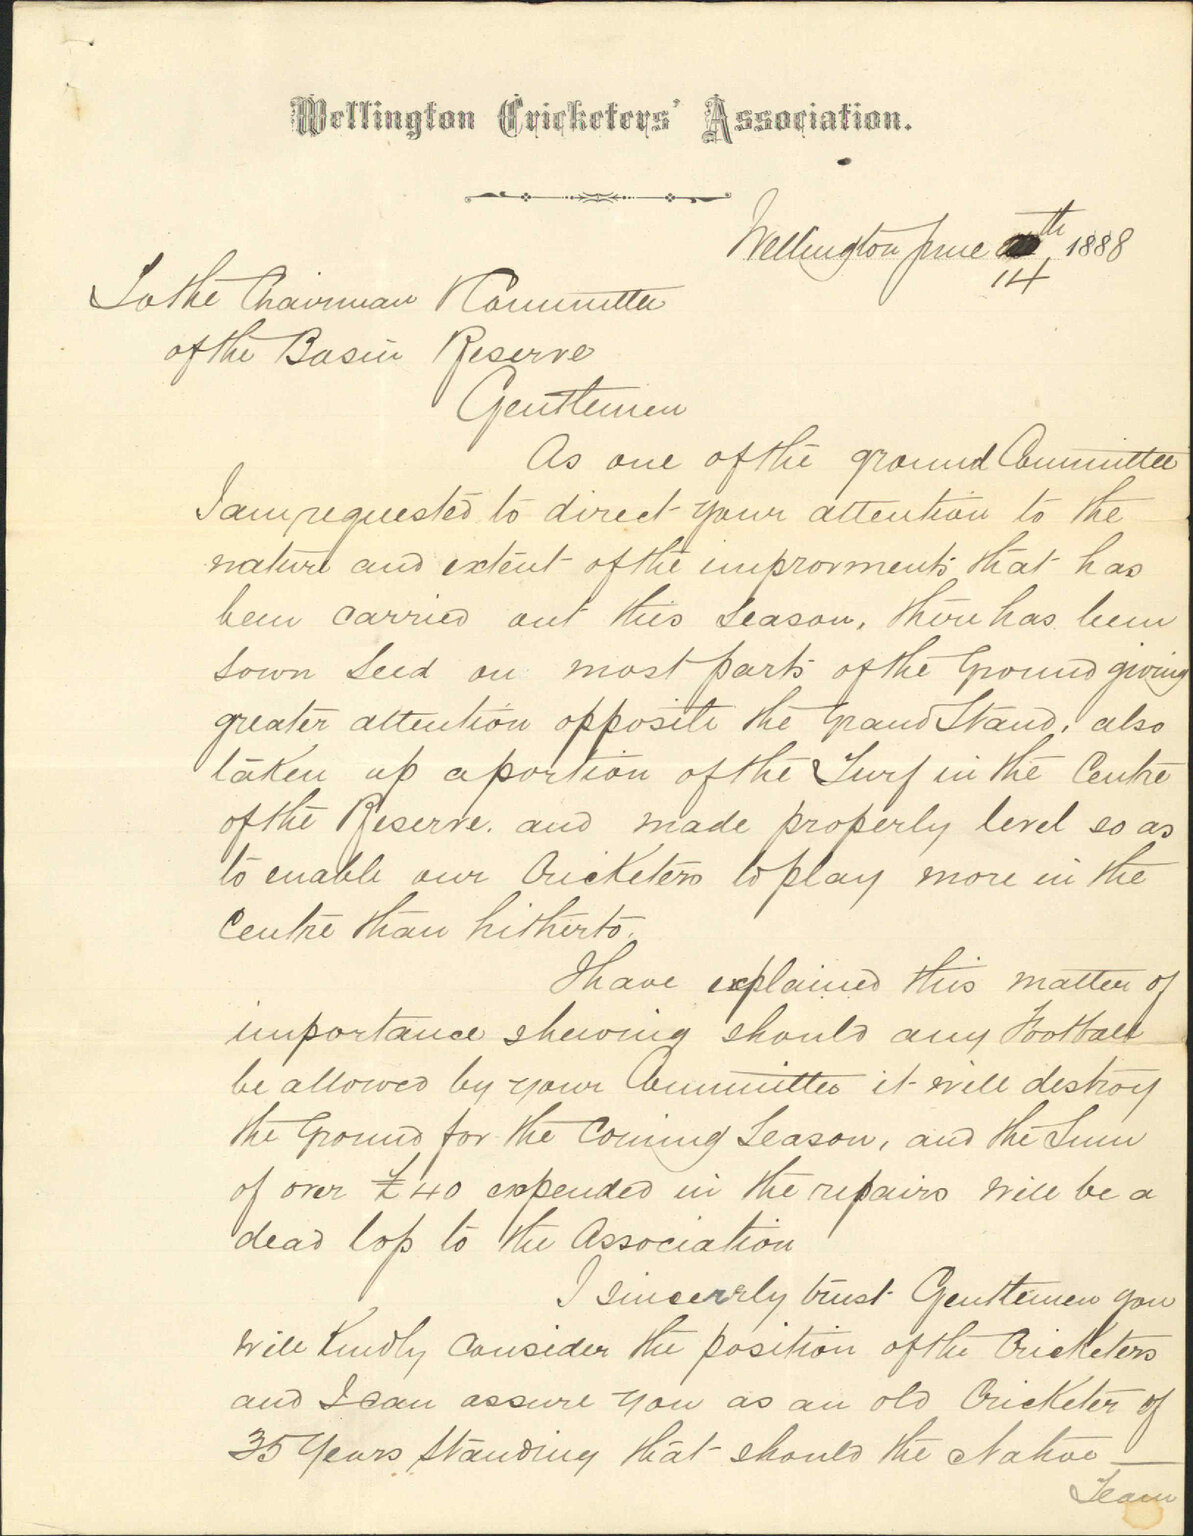 Wellington Cricketers' Association.
Wellington June th 1888
14
To the Chairman & Committee
of the Basin Reserve
Gentlemen
As one of the ground Committee
I am requested to direct your attention to the
nature and extent of the improvments that has
been carried out this Season, there has been
sown Seed on most parts of the Ground giving
greater attention opposite the Grand Stand, also
taken up a portion of the Turf in the Centre
of the Reserve. and made properly level so as
to enable our Cricketers to play more in the
Centre than hitherto.
I have explained this matter of
importance shewing should any Football
be allowed by your Committee it will destroy
the Ground for the Coming Season, and the Sum
of over £40 expended in the repairs will be a
dead lop to the Association
I sincerely trust Gentlemen you
will Kindly Consider the position of the Cricketers
and I can assure you as an old Cricketer of
35 Years Standing that should the Native
Team